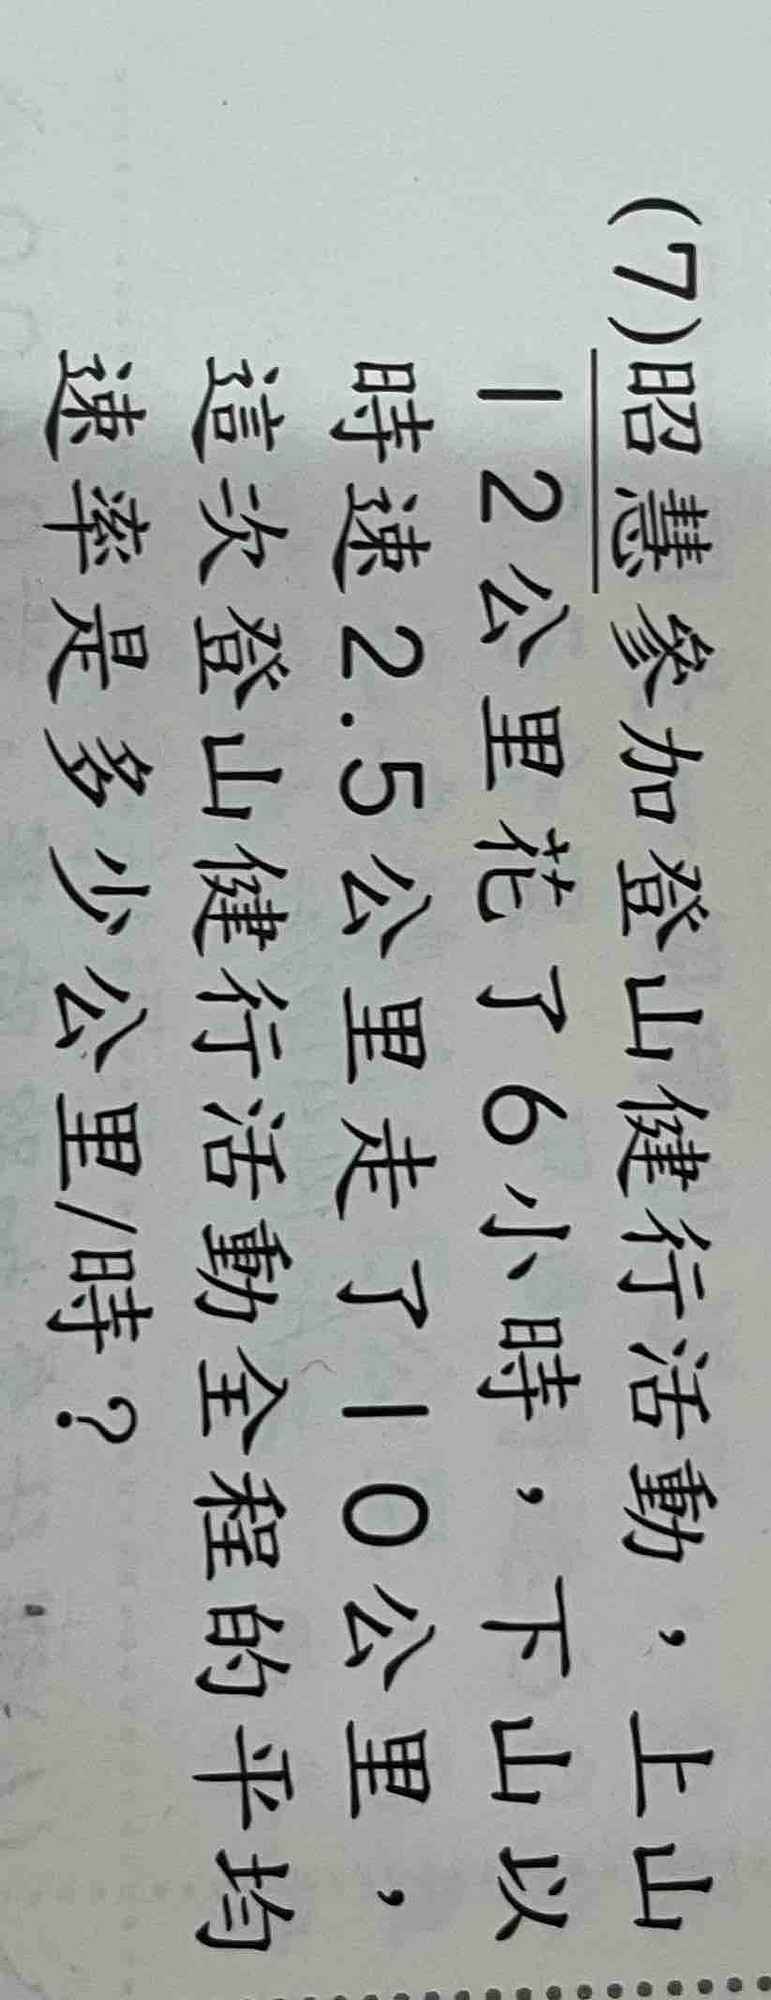 (7)昭慧參加登山健行活動，上山
12公里花了6小時，下山以
時速2.5公里走了10公里，
這次登山健行活動全程的平均
速率是多少公里/時？